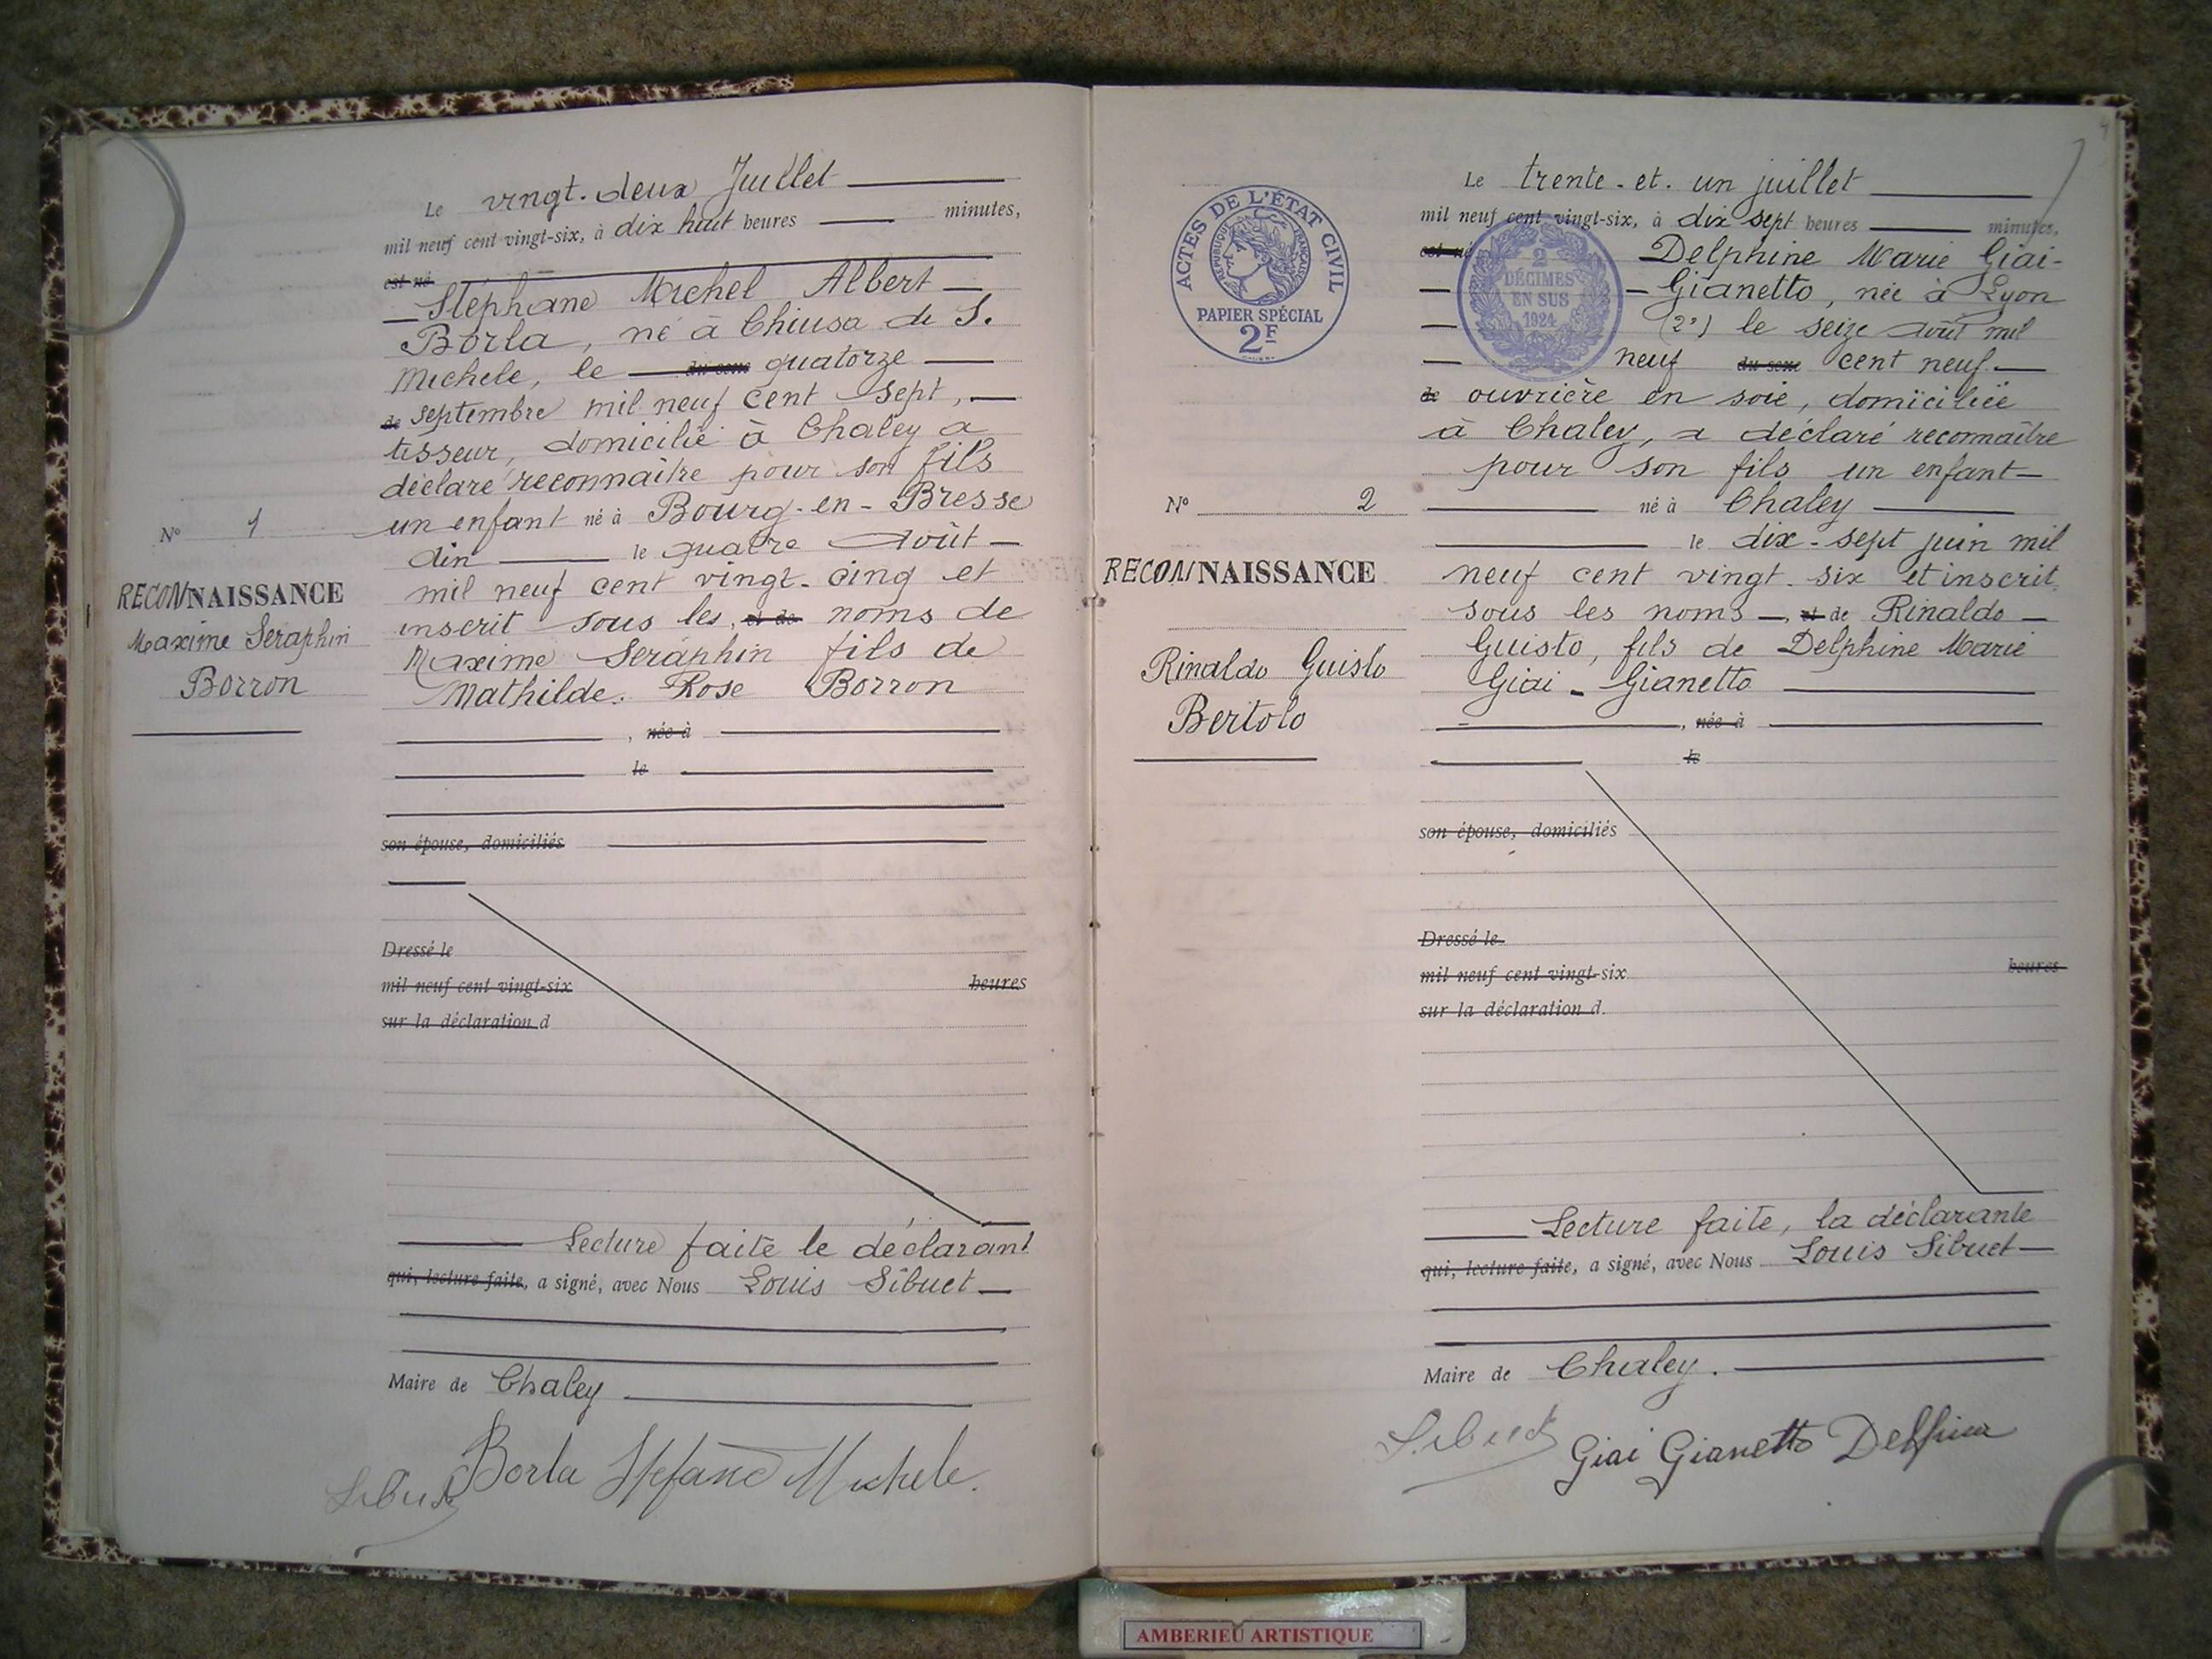 Le vingt-deux Juillet
mil neuf cent vingt-six, à dix huit heures minutes,
est né
Stéphane Michel Albert
Borla, né à Chiusa de S.
Michele, le du sexe quatorze
de septembre mil neuf cent sept,
tisseur, domicilié à Chaley a
déclaré reconnaître pour son fils
un enfant né à Bourg-en-Bresse
Ain le quatre Août
mil neuf cent vingt-cinq et
inscrit sous les, et de noms de
Maxime Seraphin fils de
Mathilde Rose Borron
, née à
le
son épouse, domiciliés
Dressé le
mil neuf cent vingt-six heures
sur la déclaration d
Lecture faite le déclarant
qui, lecture faite, a signé, avec Nous Louis Sibuet
Maire de Chaley
Sibuet Borla Stefano Michele.
N° 1
RECONNAISSANCE
Maxime Seraphin
Borron
ACTES DE L'ÉTAT CIVIL
RÉPUBLIQUE FRANÇAISE
PAPIER SPÉCIAL
2F
Le trente-et-un juillet
mil neuf cent vingt-six, à dix sept heures minutes,
est né Delphine Marie Giai-
Gianetto, née à Lyon
(2e) le seize Août mil
neuf du sexe cent neuf.
de ouvrière en soie, domiciliée
à Chaley, a déclaré reconnaître
pour son fils un enfant
né à Chaley
le dix-sept juin mil
neuf cent vingt-six et inscrit
sous les noms, et de Rinaldo
Guisto, fils de Delphine Marie
Giai-Gianetto
, née à
le
son épouse, domiciliés
Dressé le
mil neuf cent vingt-six heures
sur la déclaration d
Lecture faite, la déclarante
qui, lecture faite, a signé, avec Nous Louis Sibuet
Maire de Chaley.
Sibuet Giai Gianetto Delfina
2
DÉCIMES
EN SUS
1924
N° 2
RECONNAISSANCE
Rinaldo Guisto
Bertolo
AMBERIEU ARTISTIQUE